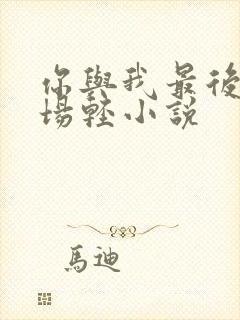 你與我最後
場輕小說
馬迪